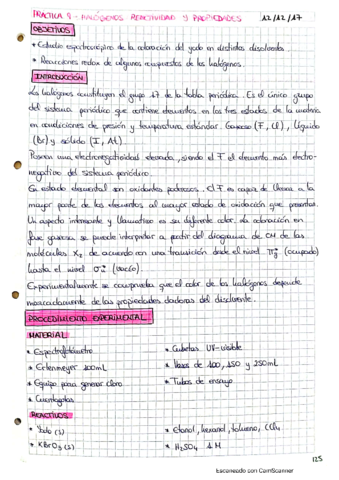 PRACTICA 9 - HALÓGENOS. REACTIVIDAD Y PROPIEDADES 12/12/17
OBJETIVOS
* Estudio espectroscópico de la coloración del yodo en distintos disolventes.
* Reacciones redox de algunos compuestos de los halógenos.
INTRODUCCIÓN
Los halógenos constituyen el grupo 17 de la tabla periódica. Es el único grupo
del sistema periódico que contiene elementos en los tres estados de la materia
en condiciones de presión y temperatura estándar. Gaseoso (F, Cl), líquido
(Br) y sólido (I, At)
Poseen una electronegatividad elevada, siendo el F el elemento más electro-
negativo del sistema periódico.
Su estado elemental son oxidantes poderosos. El F es capaz de llevar a la
mayor parte de los elementos al mayor estado de oxidación que presentan.
Un aspecto interesante y llamativo es su diferente color. La coloración en
fase gaseosa se puede interpretar a partir del diagrama de OM de las
moléculas X₂ de acuerdo con una transición desde el nivel π*g (ocupado)
hasta el nivel σ* (vacío).
Experimentalmente se comprueba que el color de los halógenos depende
marcadamente de las propiedades dadoras del disolvente.
PROCEDIMIENTO EXPERIMENTAL
MATERIAL
* Espectrofotómetro
* Cubetas UV-visible
* Erlenmeyer 100mL
* Vasos de 100, 150 y 250mL
* Equipo para generar cloro
* Tubos de ensayo
* Cuentagotas
REACTIVOS
* Yodo (s)
* Etanol, hexano, tolueno, CCl₄
* KBrO₃ (s)
* H₂SO₄ 1M
125
Escaneado con CamScanner